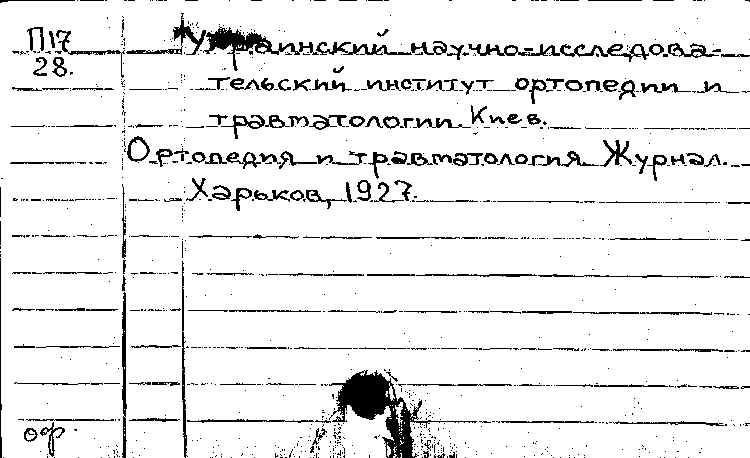 П17
28.
Украинский научно-исследова-
тельский институт ортопедии и
травматологии. Киев.
Ортопедия и травматология. Журнал.
Харьков, 1927.
оф.